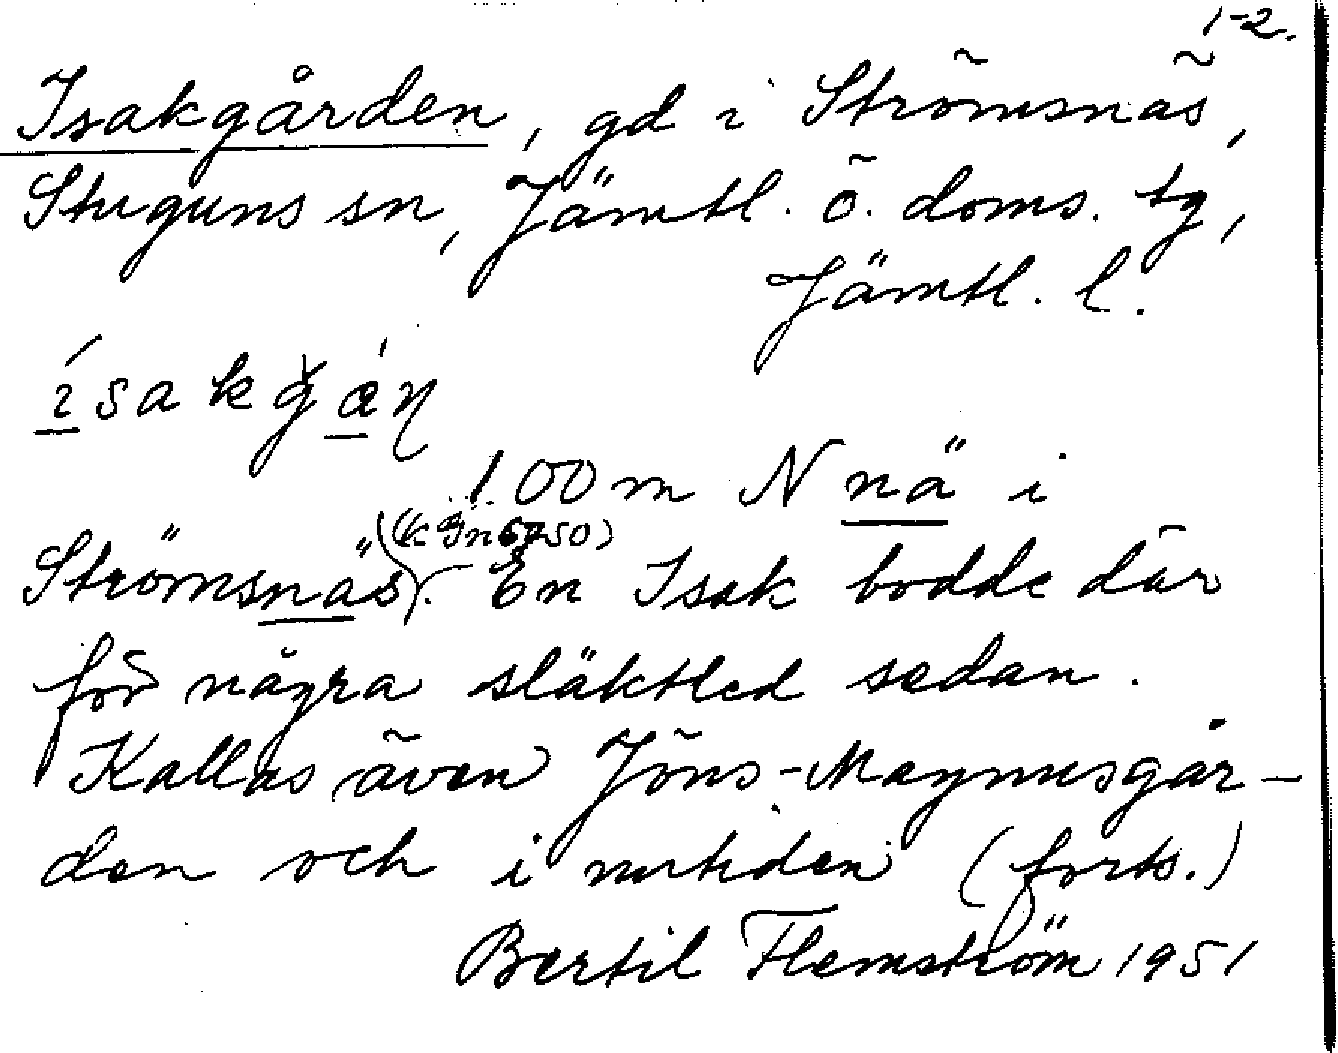 1-2.
Isakgården, gd i Strömsnäs,
Stuguns sn, Jämtl. ö. doms. tg,
Jämtl. l.
100 m N nä i
Strömsnäs). En Isak bodde där
för några släktled sedan.
Kallas även Jöns-Magnusgår-
den och i nutiden (forts.)
Bertil Flemström 1951